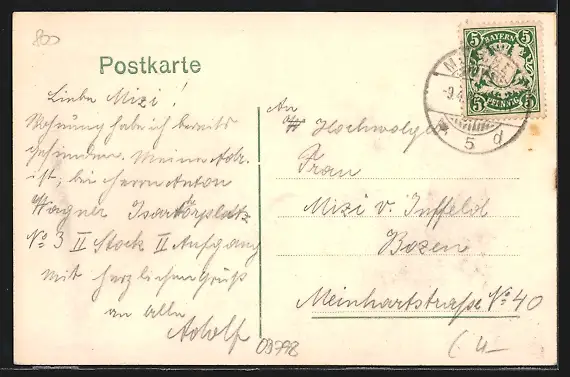 800
Postkarte
Liebe Mizi!
Wohnung habe ich bereits
gefunden. Meine Adr.
ist; bei Herrn Anton
Wagner Isartorplatz
No 3 II Stock II Aufgang
mit herzlichen Gruß
an alle
Adolf
An
Hochwolgeb.
Frau
Mizi v. Inffeld
Bozen
Meinhartstraße No 40
5 BAYERN 5
5 PFENNIG 5
5 d
03798